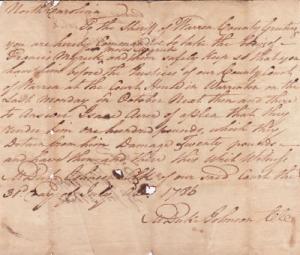 North Carolina
To the Sheriff of Warren County Greeting
you are hereby Commanded to take the body of
Francis Myrick and him safely keep so that you
have him before the Justices of our County Court
of Warren at the Court held in Warrenton on the
last monday in October Next then and there
to Answer Isaac Acree of a plea that they
render him one hundred pounds, which they
Detain from him Damage Twenty pounds
and have then and there this Writ Witness
M Duke Johnson Clk of our said Court the
31 day of July 1786
M Duke Johnson CC